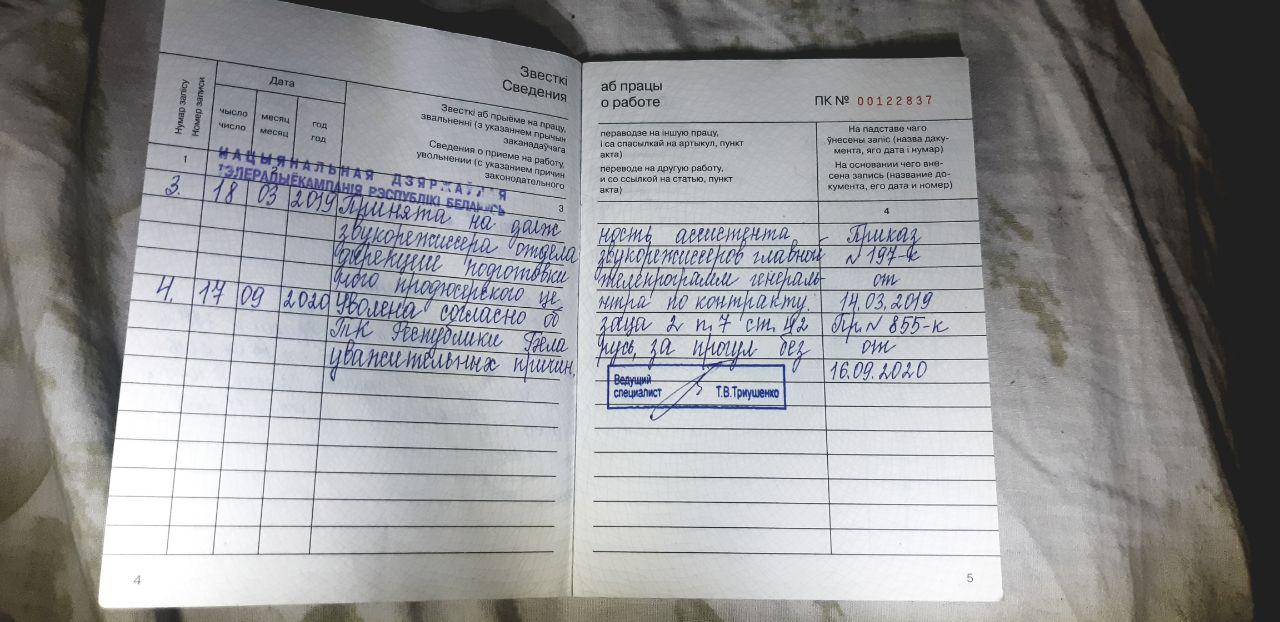 Звесткі
Сведения
Нумар запісу
Номер записи
Дата
чысло
число
месяц
месяц
год
год
Звесткі аб прыёме на працу,
звальненні (з указаннем прычын
заканадаўчага
Сведения о приеме на работу,
увольнении (с указанием причин
законодательного
1
3
НАЦЫЯНАЛЬНАЯ ДЗЯРЖАЎНАЯ
ТЭЛЕРАДЫЁКАМПАНІЯ РЭСПУБЛІКІ БЕЛАРУСЬ
3. 18 03 2019 Принята на долж
звукорежиссера отдела
дирекции подготовки
ного продюсерского це
4. 17 09 2020 Уволена согласно аб
ТК Республики Бела
уважительных причин.
4
аб працы
о работе
ПК № 00122837
пераводзе на іншую працу,
і са спасылкай на артыкул, пункт
акта)
переводе на другую работу,
и со ссылкой на статью, пункт
акта)
На падставе чаго
ўнесены запіс (назва даку-
мента, яго дата і нумар)
На основании чего вне-
сена запись (название до-
кумента, его дата и номер)
4
ность ассистента Приказ
звукорежиссеров главной № 197-к
телепрограмм генераль от
нтра по контракту. 14.03.2019
заца 2 п. 7 ст. 42 Пр. № 855-к
русь, за прогул без от
16.09.2020
Ведущий
специалист Т.В.Триушенко
5